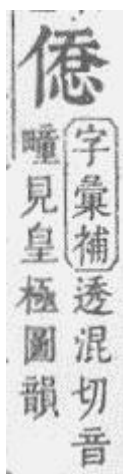 字彙補透混切音
畽見皇極圖韻